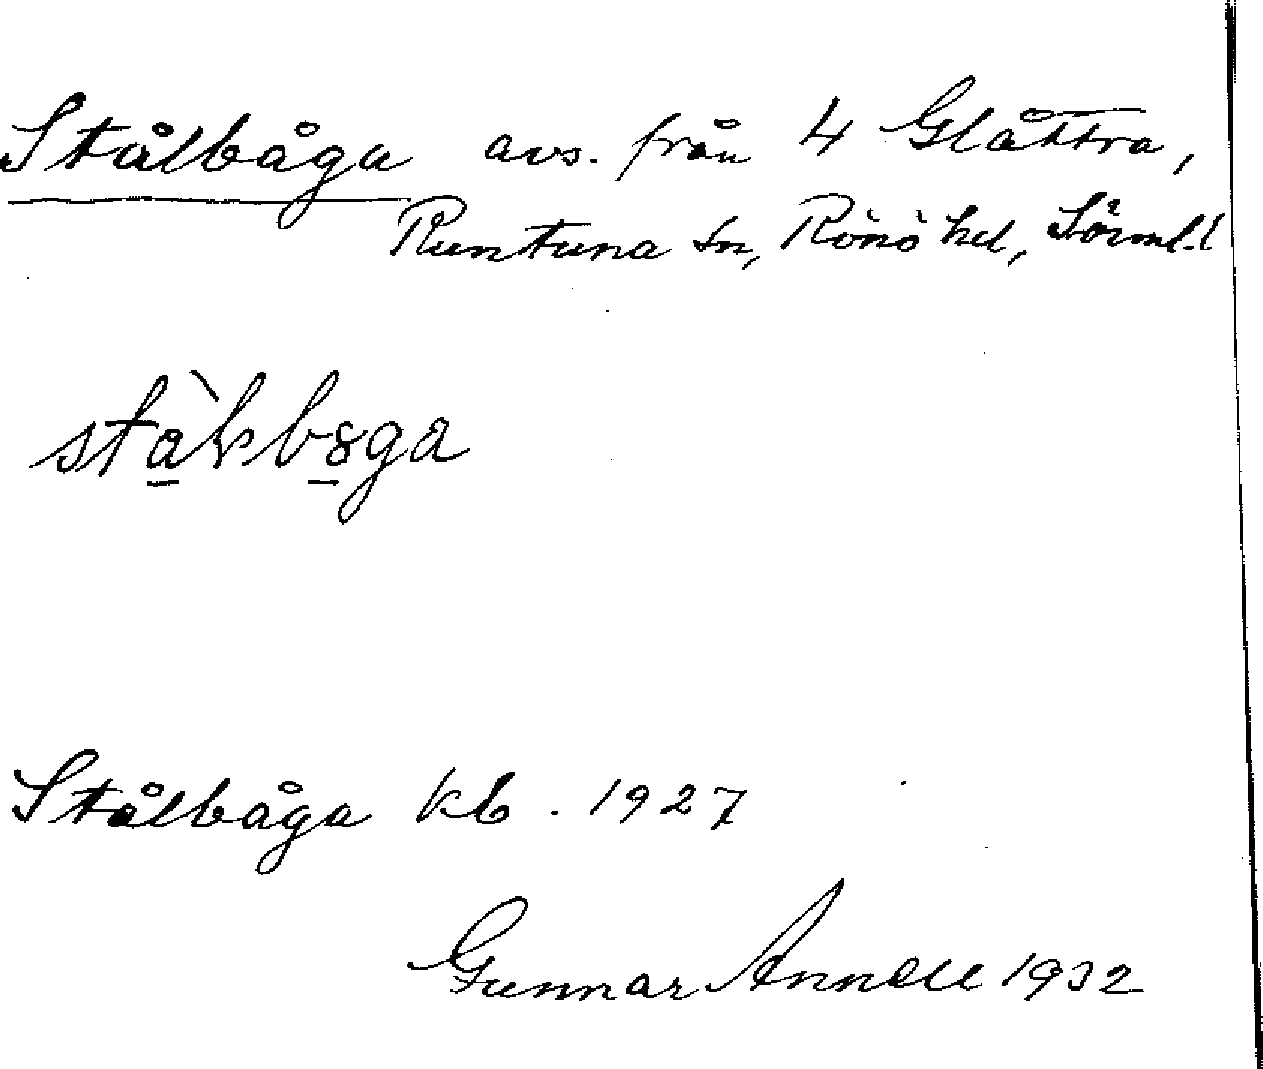 Stålbåga avs. från 4 Glåttra,
Runtuna sn, Rönö hd, Sörml.l
Stålbåga kb. 1927
Gunnar Annell 1932